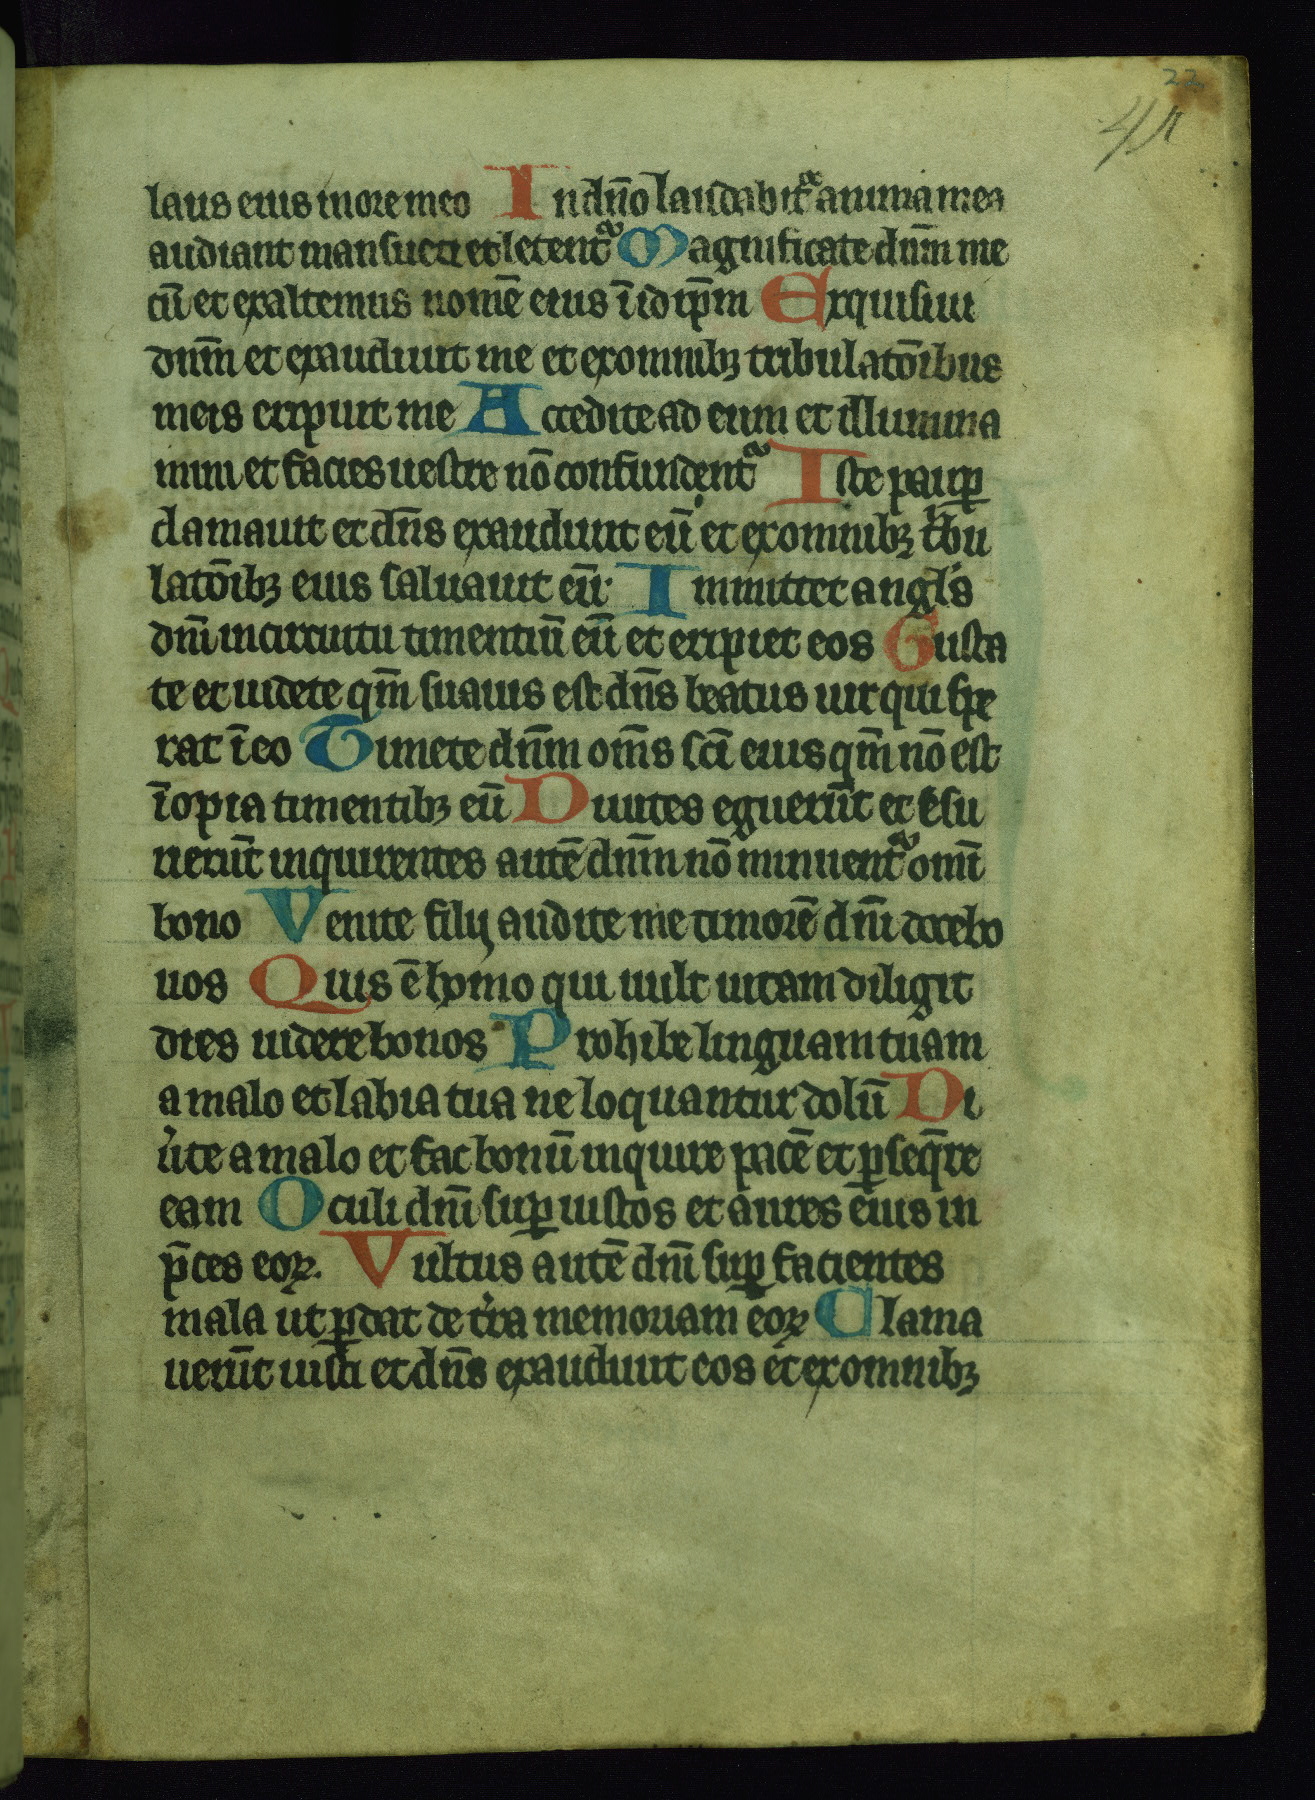 22
laus eius in ore meo In dn̄o laudabitᵃ anima mea
audiant mansueti et letentᵃ Magnificate dn̄m me
cū et exaltemus nomē eius ī idip̄m Exquisiui
dn̄m et exaudiuit me et ex omnibꝫ tribulatōibus
meis eripuit me Accedite ad eum et illumina
mini et facies uestre nō confundentᵃ Iste paup̲
clamauit et dn̄s exaudiuit eū et ex omnibꝫ tⁱbu
latōibꝫ eius saluauit eū· Inmittet angl's
dn̄i in circuitu timentiū eū et eripiet eos Gusta
te et uidete qm̄ suauis est dn̄s beatus uir qui spe
rat ī eo Timete dn̄m om̄s sc̄i eius qm̄ nō est
īopia timentibꝫ eū Diuites eguerūt et esu
rierūt inquirentes autē dn̄m nō minuentᵃ omī
bono Venite filij audite me timorē dn̄i docebo
uos Quis ē homo qui uult uitam diligit
dies uidere bonos Prohibe linguam tuam
a malo et labia tua ne loquantur dolū Di
u'te a malo et fac bonū inquire pacē et ꝑseq̄re
eam Oculi dn̄i suꝑ iustos et aures eius in
p̄ces eoꝝ. Vultus autē dn̄i suꝑ facientes
mala ut ꝑdat de t'ra memoriam eoꝝ Clama
uerūt iusti et dn̄s exaudiuit eos et ex omnibꝫ